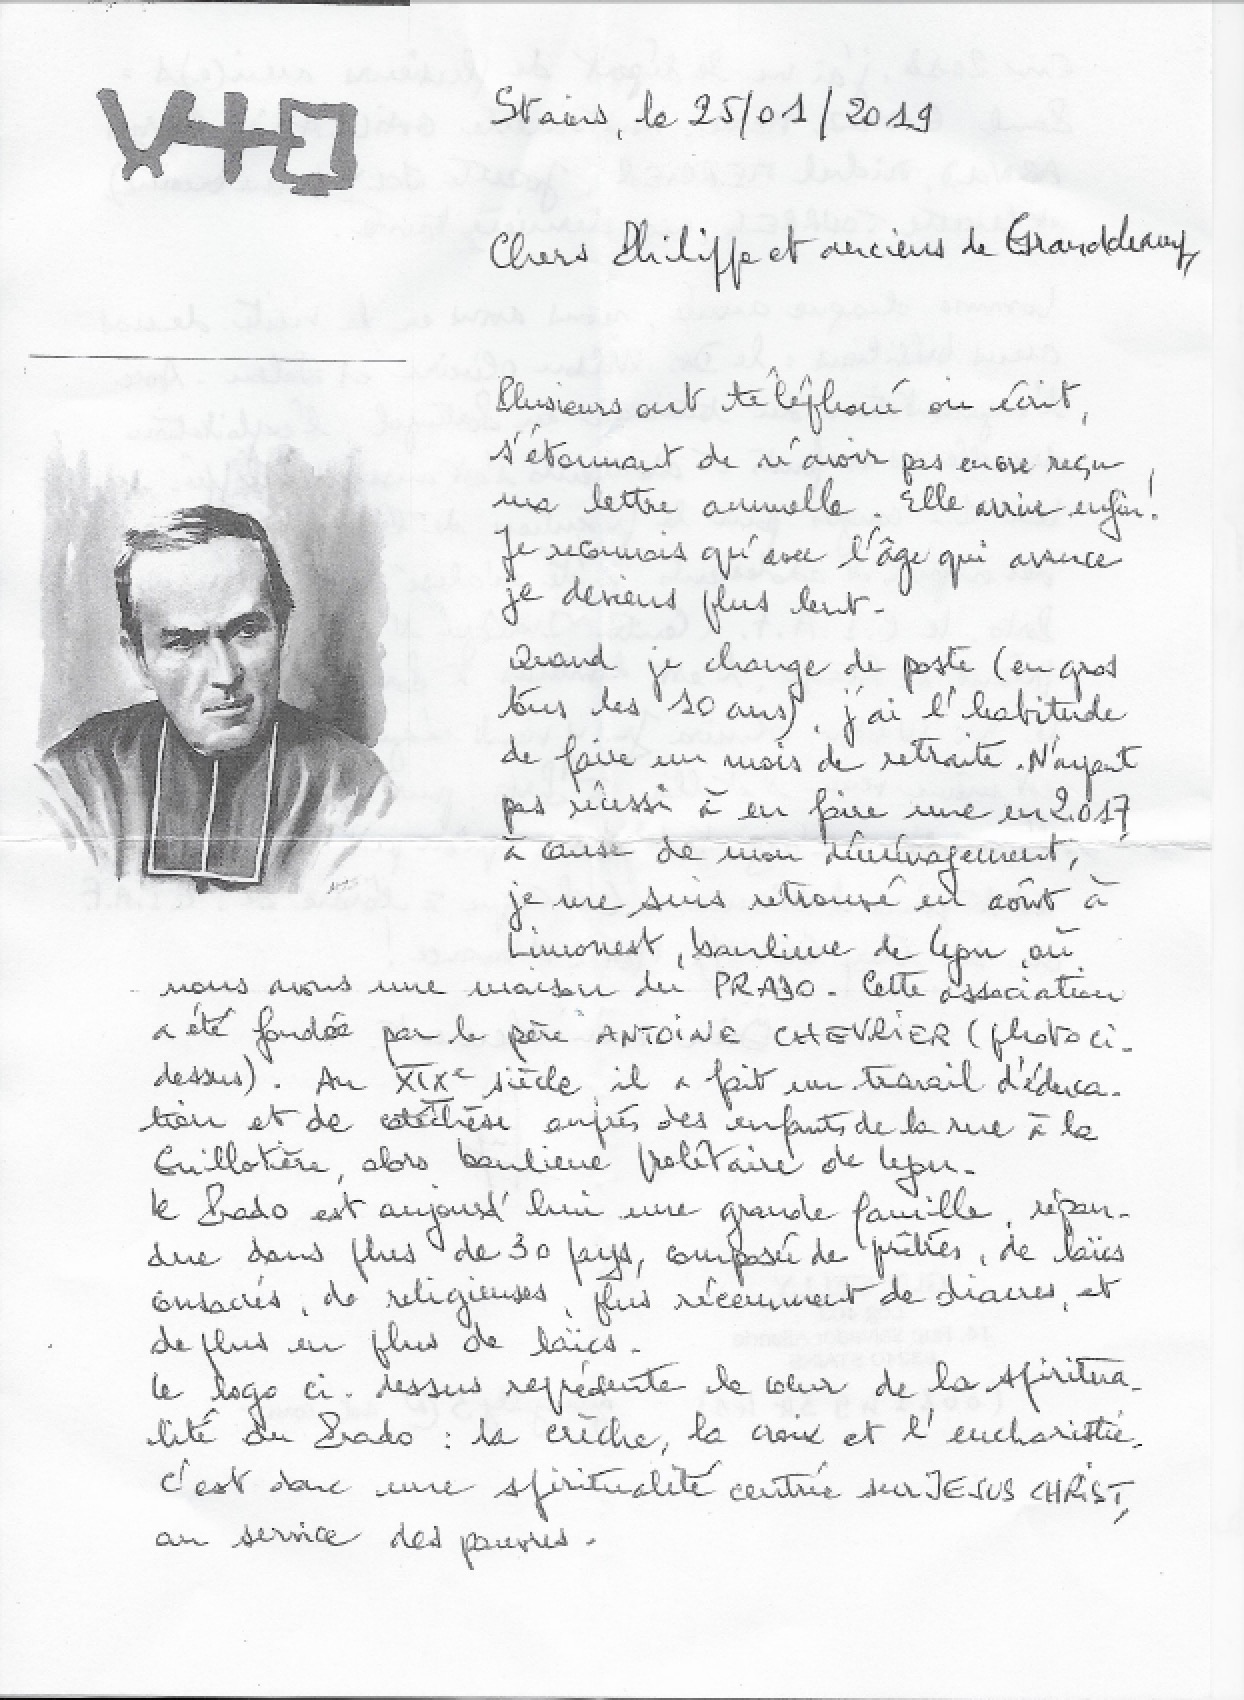 Stains, le 25/01/2019
Chers Philippe et anciens de Grandchamp,
Plusieurs ont téléphoné ou écrit,
s'étonnant de n'avoir pas encore reçu
ma lettre annuelle. Elle arrive enfin!
Je reconnais qu'avec l'âge qui avance
je deviens plus lent.
Quand je change de poste (en gros
tous les 10 ans), j'ai l'habitude
de faire un mois de retraite. N'ayant
pas réussi à en faire une en 2017
à cause de mon déménagement,
je me suis retrouvé en août à
Limonest, banlieue de Lyon, où
nous avons une maison du PRADO. Cette association
a été fondée par le père ANTOINE CHEVRIER (photo ci-
dessus). Au XIXe siècle il a fait un travail d'éduca-
tion et de catéchèse auprès des enfants de la rue à la
Guillotière, alors banlieue prolétaire de Lyon.
Le Prado est aujourd'hui une grande famille, répan-
due dans plus de 30 pays, composée de prêtres, de laïcs
consacrés, de religieuses, plus récemment de diacres, et
de plus en plus de laïcs.
Le logo ci-dessus représente le cœur de la spiritua-
lité du Prado : la crèche, la croix et l'eucharistie.
C'est donc une spiritualité centrée sur JESUS CHRIST,
au service des pauvres.